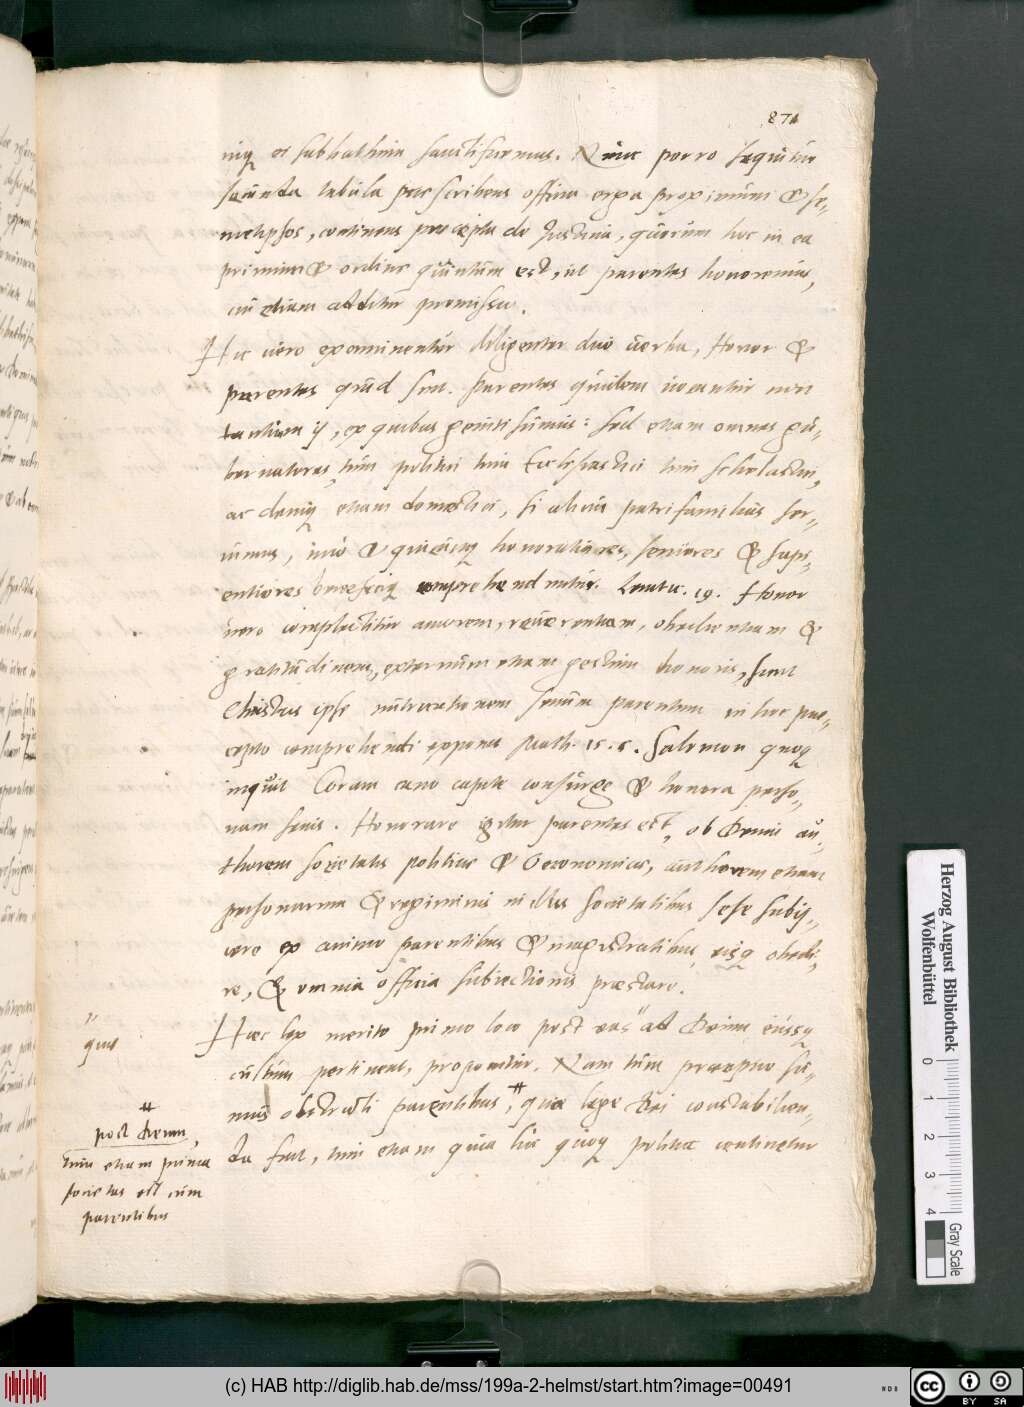 871
niq et sabbathum sanctificemus. Nunc porro sequitur
secunda tabula praescribens officia erga proximum & se-
metipsos, continens praecepta de Justitia, quorum hoc in ea
primum & ordine quintum est, ut parentes honoremus,
cui etiam additur promissio.
Hic vero examinentur diligenter duo verba, Honor &
parentes quid sint. Parentes quidem vocantur non
tantum ij, ex quibus geniti sumus: sed etiam omnes gu-
bernatores, tum politici tum Ecclesiastici tum scholastici,
ac deniq etiam domestici, si alicui patrifamilias ser-
uimus, imo & quicunq honoratiores, seniores & sapi-
entiores comprehenduntur. Leuit. 19. Honor
vero complectitur amorem, reuerentiam, obedientiam &
gratitudinem, externum etiam gestum honoris, sicut
Christus ipse nutricationem senum parentum in hoc prae-
cepto comprehendi exponit Math. 15. Salomon quoq
inquit Coram cano capite consurge & honora perso-
nam senis. Honorare igitur parentes est, ob Deum au-
thorem societatis politicae & Oeconomicae, authorem etiam
personarum & regiminis in illis societatibus sese subij-
cere ex animo parentibus & magistratibus, eisq obedi-
re, & omnia officia subiectionis praestare.
Haec lex merito primo loco post eas" ad Deum eiusq
cultum pertinent, proponitur. Nam tum praecipue su-
mus obstricti parentibus,# quia lege Dei constabilien-
da sint, tum etiam quia sic quoq politiae continetur
"
quae
#
post Deum,
tum etiam prima
societas est cum
parentibus
Herzog August Bibliothek
Wolfenbüttel
0 1 2 3 4
Gray Scale
(c) HAB http://diglib.hab.de/mss/199a-2-helmst/start.htm?image=00491
cc BY SA